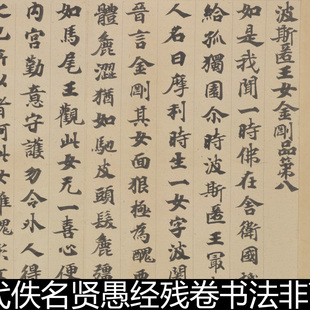 波斯匿王女金剛品第八
如是我聞一時佛在舍衛國祇
給孤獨園尒時波斯匿王最
人名曰摩利時生一女字波闍
晉言金剛其女面狠極為醜
體麁澀猶如駞皮頭髮麁
如馬尾王觀此女无一喜心便
内宮勤意守護勿令外人得
所以者何此女雖醜
代佚名贤愚经残卷书法非